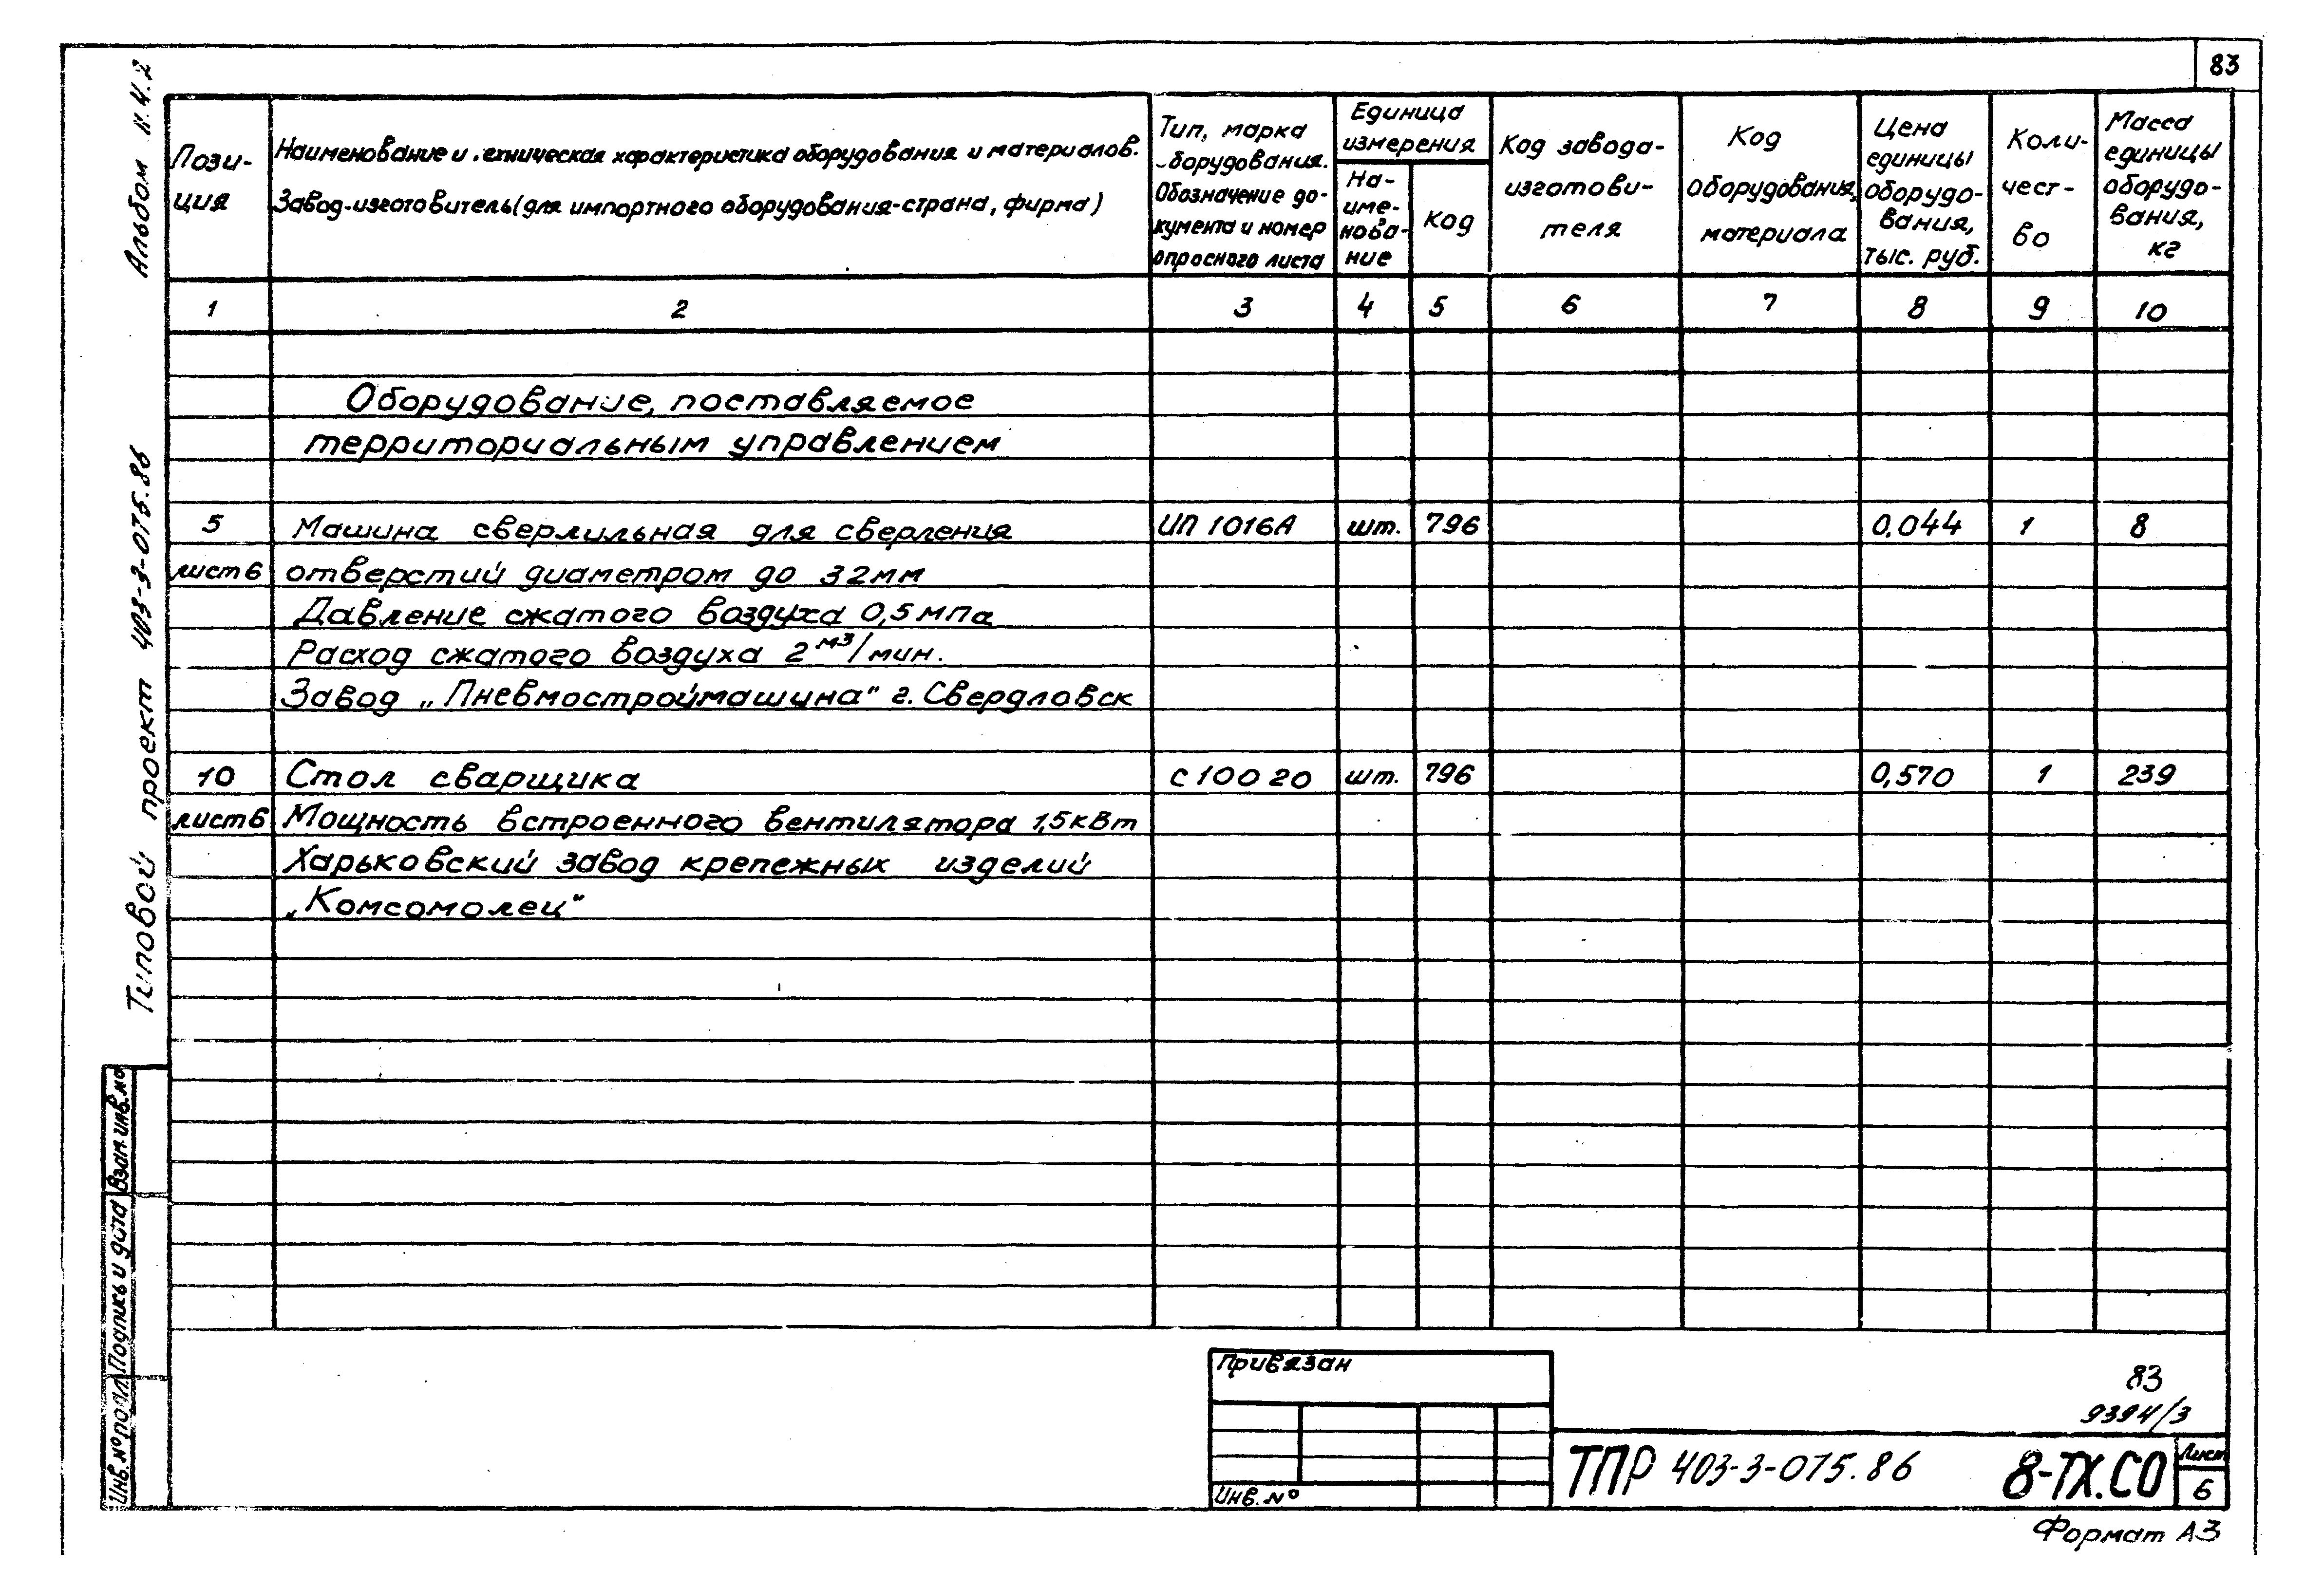 83
Альбом II.4.2
Типовой проект 403-3-075.86
Пози-
ция
Наименование и техническая характеристика оборудования и материалов.
Завод-изготовитель (для импортного оборудования-страна, фирма)
Тип, марка
оборудования.
Обозначение до-
кумента и номер
опросного листа
Единица
измерения
На-
име-
нова-
ние
код
Код завода-
изготови-
теля
Код
оборудования,
материала
Цена
единицы
оборудо-
вания,
тыс. руб.
Коли-
чест-
во
Масса
единицы
оборудо-
вания,
кг
1 2 3 4 5 6 7 8 9 10
Оборудование, поставляемое
территориальным управлением
5 Машина сверлильная для сверления ИП 1016А шт. 796 0,044 1 8
лист 6 отверстий диаметром до 32мм
Давление сжатого воздуха 0,5 мпа
Расход сжатого воздуха 2 м³/мин.
Завод „Пневмостроймашина" г. Свердловск
10 Стол сварщика С 100 20 шт. 796 0,570 1 239
лист 6 Мощность встроенного вентилятора 1,5 кВт
Харьковский завод крепежных изделий
„Комсомолец"
Взам. инв. №
Подпись и дата
Инв. № подл.
Привязан
Инв. №
83
9394/3
ТПР 403-3-075.86 8-ТХ.СО
Лист
6
Формат А3